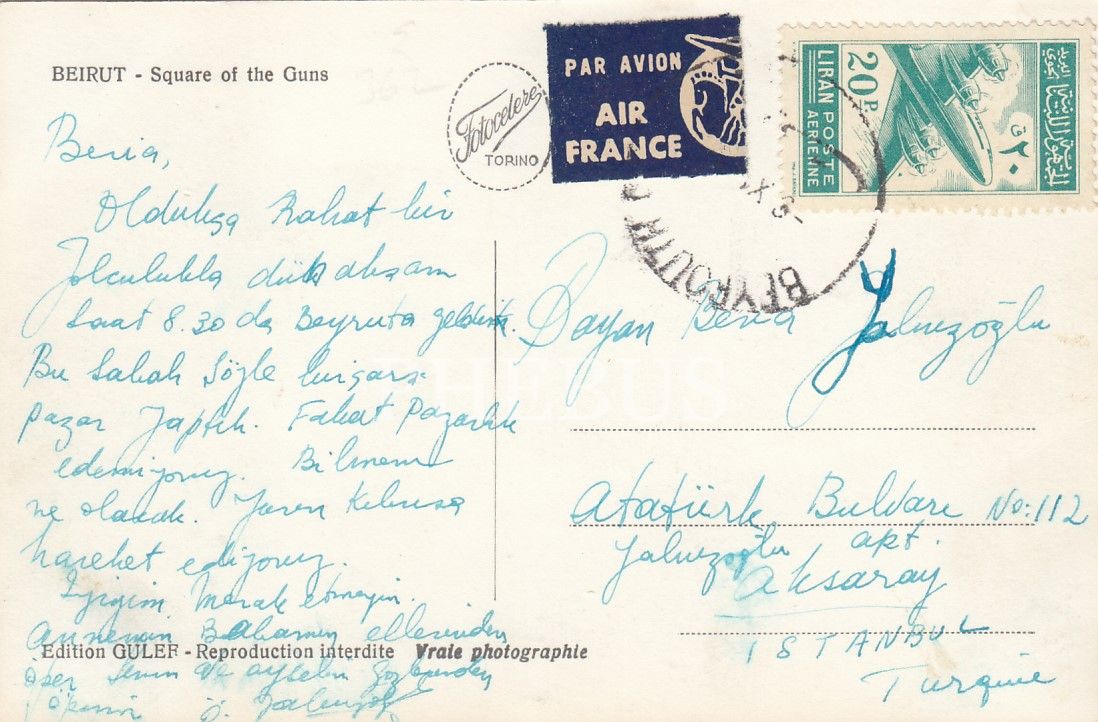 BEIRUT - Square of the Guns
Fotocelere
TORINO
PAR AVION
AIR
FRANCE
LIBAN POSTE
AERIENNE
20 P.
٢٠ ق
BEYROUTH
Beria,
Oldukça Rahat bir
Yolculukla dün akşam
Saat 8.30 da Beyruta geldik.
Bu sabah şöyle bir çarşı
pazar yaptık. Fakat Pazarlık
edemiyoruz. Bilmem
ne olacak. Yarın Kıbrısa
hareket ediyoruz.
İyiyim Merak etmeyin.
Annemin Babamın ellerinden
Edition GULEF - Reproduction interdite Vraie photographie
öper senin ve gözlerinden
öperim
Bayan Beria Yalnızoğlu
Atatürk Bulvarı No: 112
Yalnızoğlu apt.
Aksaray
ISTANBUL
Turquie
THEBUS